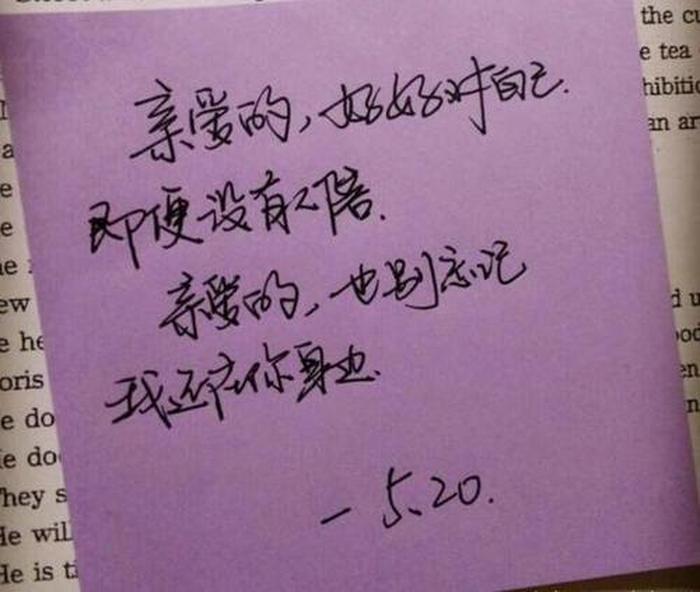 the cu
e tea
hibitio
an ar
亲爱的,好好对自己.
即便没有人陪.
亲爱的,也别忘记
我还在你身边.
- 5.20.
ew
e he
oris
e do
e do
They s
He will
He is ti